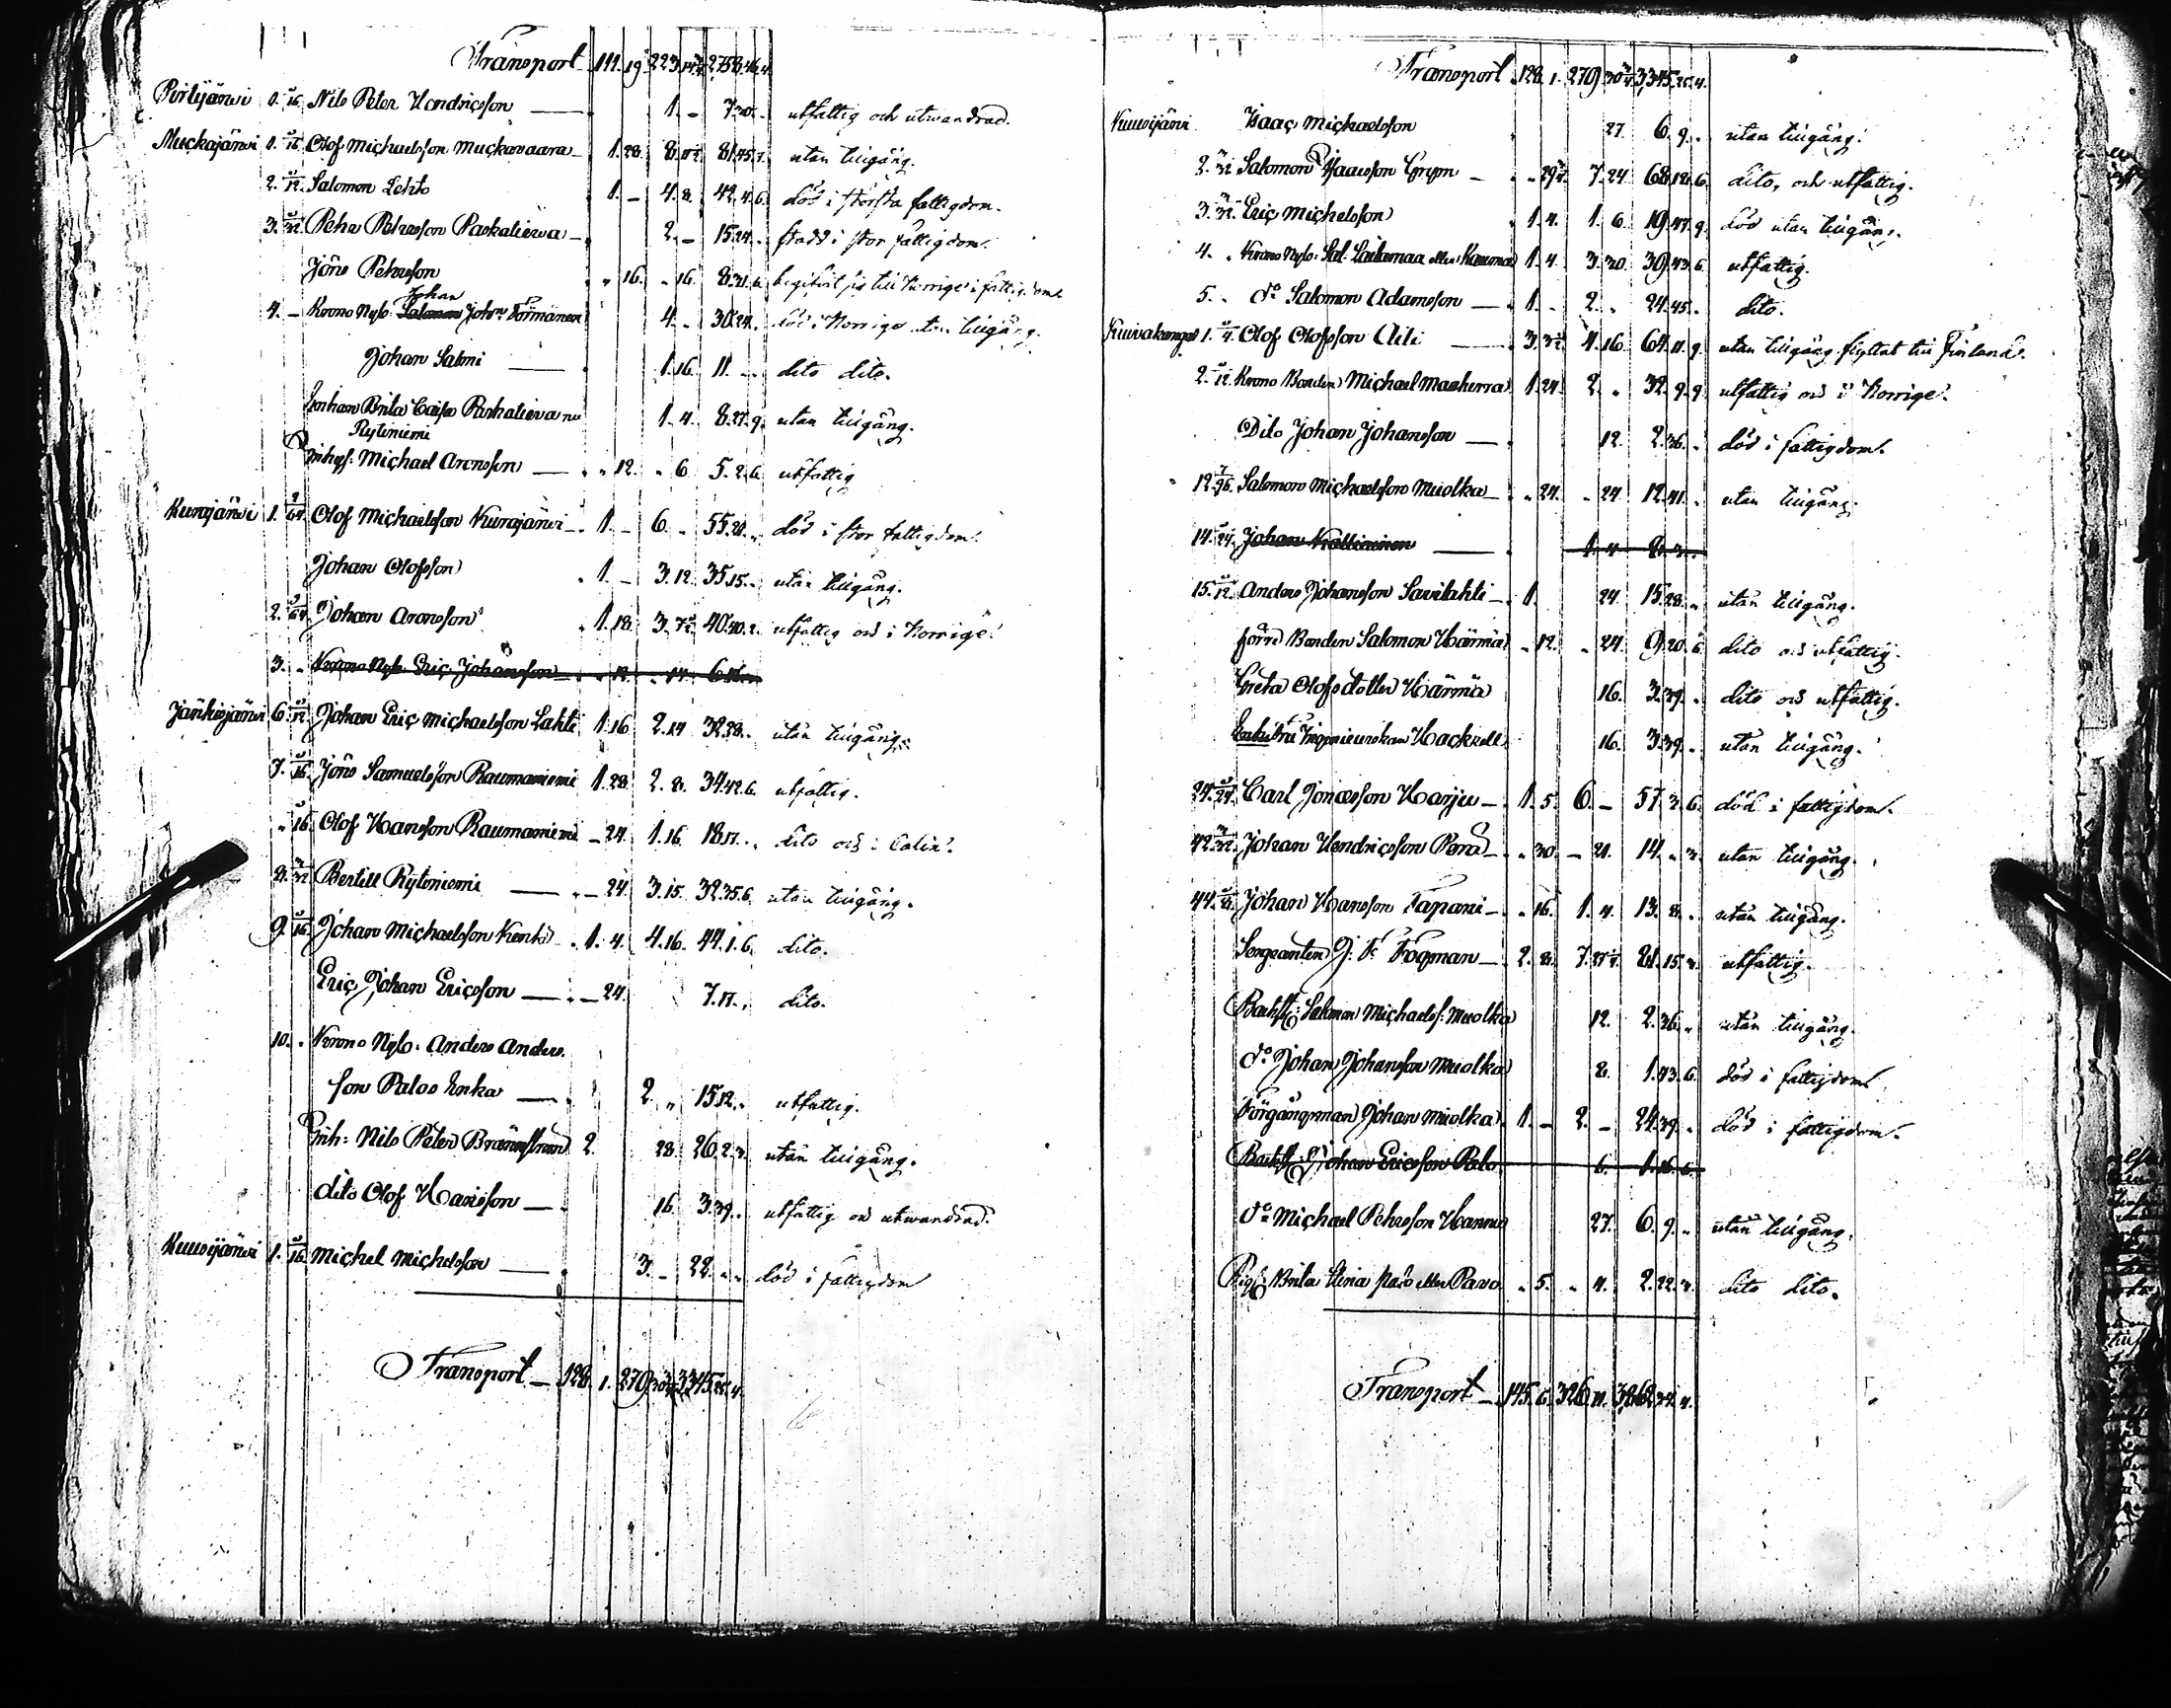 Transport 111. 19 223. 2758.46.4.
Pirtijärvi 8. 5/16 Nils Peter Hendricsson — 1. - 7.30. utfattig och utwandrad.
Muckajärvi 1. Olof Michaelsson Muckavaara — 1.28. 8. 81.45. utan tillgång.
2. 5/12 Salomon Lehto 1. — 4. 8. 42. 4. 6. död i största fattigdom.
3. Pehr Pehrsson Paskalieva — 2. — 15.24. stadd i stor fattigdom.
Jöns Pehrsson „ 16. „ 16. 8.21.6. begifvit sig till Norrige i fattigdom
Johan
4. — Krono Nyb: Salomon Johns Törmänen 4. „ 30.24. död i Norrige utan tillgång.
Johan Salmi — 1.16. 11. „ „ dito dito.
Enkan Brita Caisa Paskalieva nu 1. 4. 8.27.9. utan tillgång.
Rytiniemi
Inhys: Michael Aronsson — „ 12. „ 6. 5. 2. 6. utfattig
Kurajärvi 1. 9/64 Olof Michaelsson Kurajärvi — 1. — 6. „ 55.21. „ död i stor fattigdom.
Johan Olofsson 1. — 3.12. 35.15. „ utan tillgång.
2. 9/64 Johan Aronsson 1.18. 3. 40.40.2. utfattig och i Norrige.
3. „ Krono Nyb: Eric Johansson — „ 12. „ 14. 6.
Jänkisjärvi 6. 5/12 Johan Eric Michaelsson Lahti 1.16 2.14 32.38. utan tillgång.
7. 5/16 Jöns Samuelsson Raumaniemi 1.28. 2. 8. 34.42.6. utfattig.
„ 5/16 Olof Hansson Raumaniemi — 24. 1.16. 18.17. „ dito och i Calix.
8. 3/32 Bertill Rytoniemi — — 24. 3.15. 32.35.6. utan tillgång.
9. 5/16 Johan Michaelsson Kenta — 1. 4. 4.16. 44. 1. 6. dito.
Eric Johan Ericsson — — 24. 7.17. „ dito.
10. „ Krono Nyb: Anders Anders
son Palos Enka — 2. „ 15.12. „ utfattig.
Inh: Nils Peter Brännström 2. 28. 26. 2. 3. utan tillgång.
dito Olof Hansson — 16. 3.39. utfattig och utwandrad.
Kuusijärvi 1. 5/16 Michel Michelsson — 3. — 22. „ „ död i fattigdom
Transport — 128. 1. 279. 3345.25.4.
Transport 128. 1. 279. 3,345.25.4.
Kuusijärvi Isaac Michaelsson 27. 6. 9. „ utan tillgång.
2. 3/32 Salomon Isacsson Grym — „ 7.24. 68.18.6. dito, och utfattig.
3. 3/32 Eric Michelsson 1. 4. 1. 6. 19.47.9. död utan tillgång.
4. „ Krono Nyb: Sal: Lailamaa eller Kauma 1. 4. 3.30. 39.43.6. utfattig.
5. „ do Salomon Adamsson — 1. — 2. „ 24.45. „ dito.
Kuivakangas 1. 5/4 Olof Olofsson Aili — 3. 4.16. 64.11.9. utan tillgång flyttat till Finland.
2. 5/12 Krono Bonden Michael Maaherra 1.24. 2. „ 32. 9. 9. utfattig och i Norrige.
Dito Johan Johansson — 12. 2.36. „ död i fattigdom.
12. 7/96 Salomon Michaelsson Muolka — „ 24. „ 24. 12.41. „ utan tillgång.
14. 5/24 Johan — 1. 4. 8.
15. 5/12 Anders Johansson Savilahti — 1. 24. 15.28. „ utan tillgång.
förre Bonden Salomon Härmä „ 12. „ 24. 9.20.6. dito och utfattig.
Greta Olofsdotter Härmä 16. 3.39. „ dito och utfattig.
Enke fru Ingenieurskan Hackzell 16. 3.39. „ utan tillgång.
24. 5/24 Carl Jonasson Harju — 1. 5. 6. — 57. 3. 6. död i fattigdom.
42. 3/32 Johan Hendricsson Perä — „ 30. — 21. 14. „ 3. utan tillgång.
44. Johan Hansson Tapani — „ 16. 1. 4. 13. 8. „ utan tillgång.
Sergeanten J. F. Fogman — 2. 8. 7. 81.15.3. utfattig.
Backst: Salomon Michaels: Muolka 12. 2.36. „ utan tillgång.
do Johan Johansson Muolka 8. 1.43.6. död i fattigdom
Förgångsman Johan Muolka 1. — 2. — 24.39. „ död i fattigdom.
Backst: Johan Ericsson Palo 6. 1.16.6.
do Michael Pehrsson Hannu 27. 6. 9. „ utan tillgång.
Pig: Brita Elena Palo eller Pavo „ 5. „ 4. 2.22.3. dito dito.
Transport — 145. 6. 326. 11. 3,868.32.4.